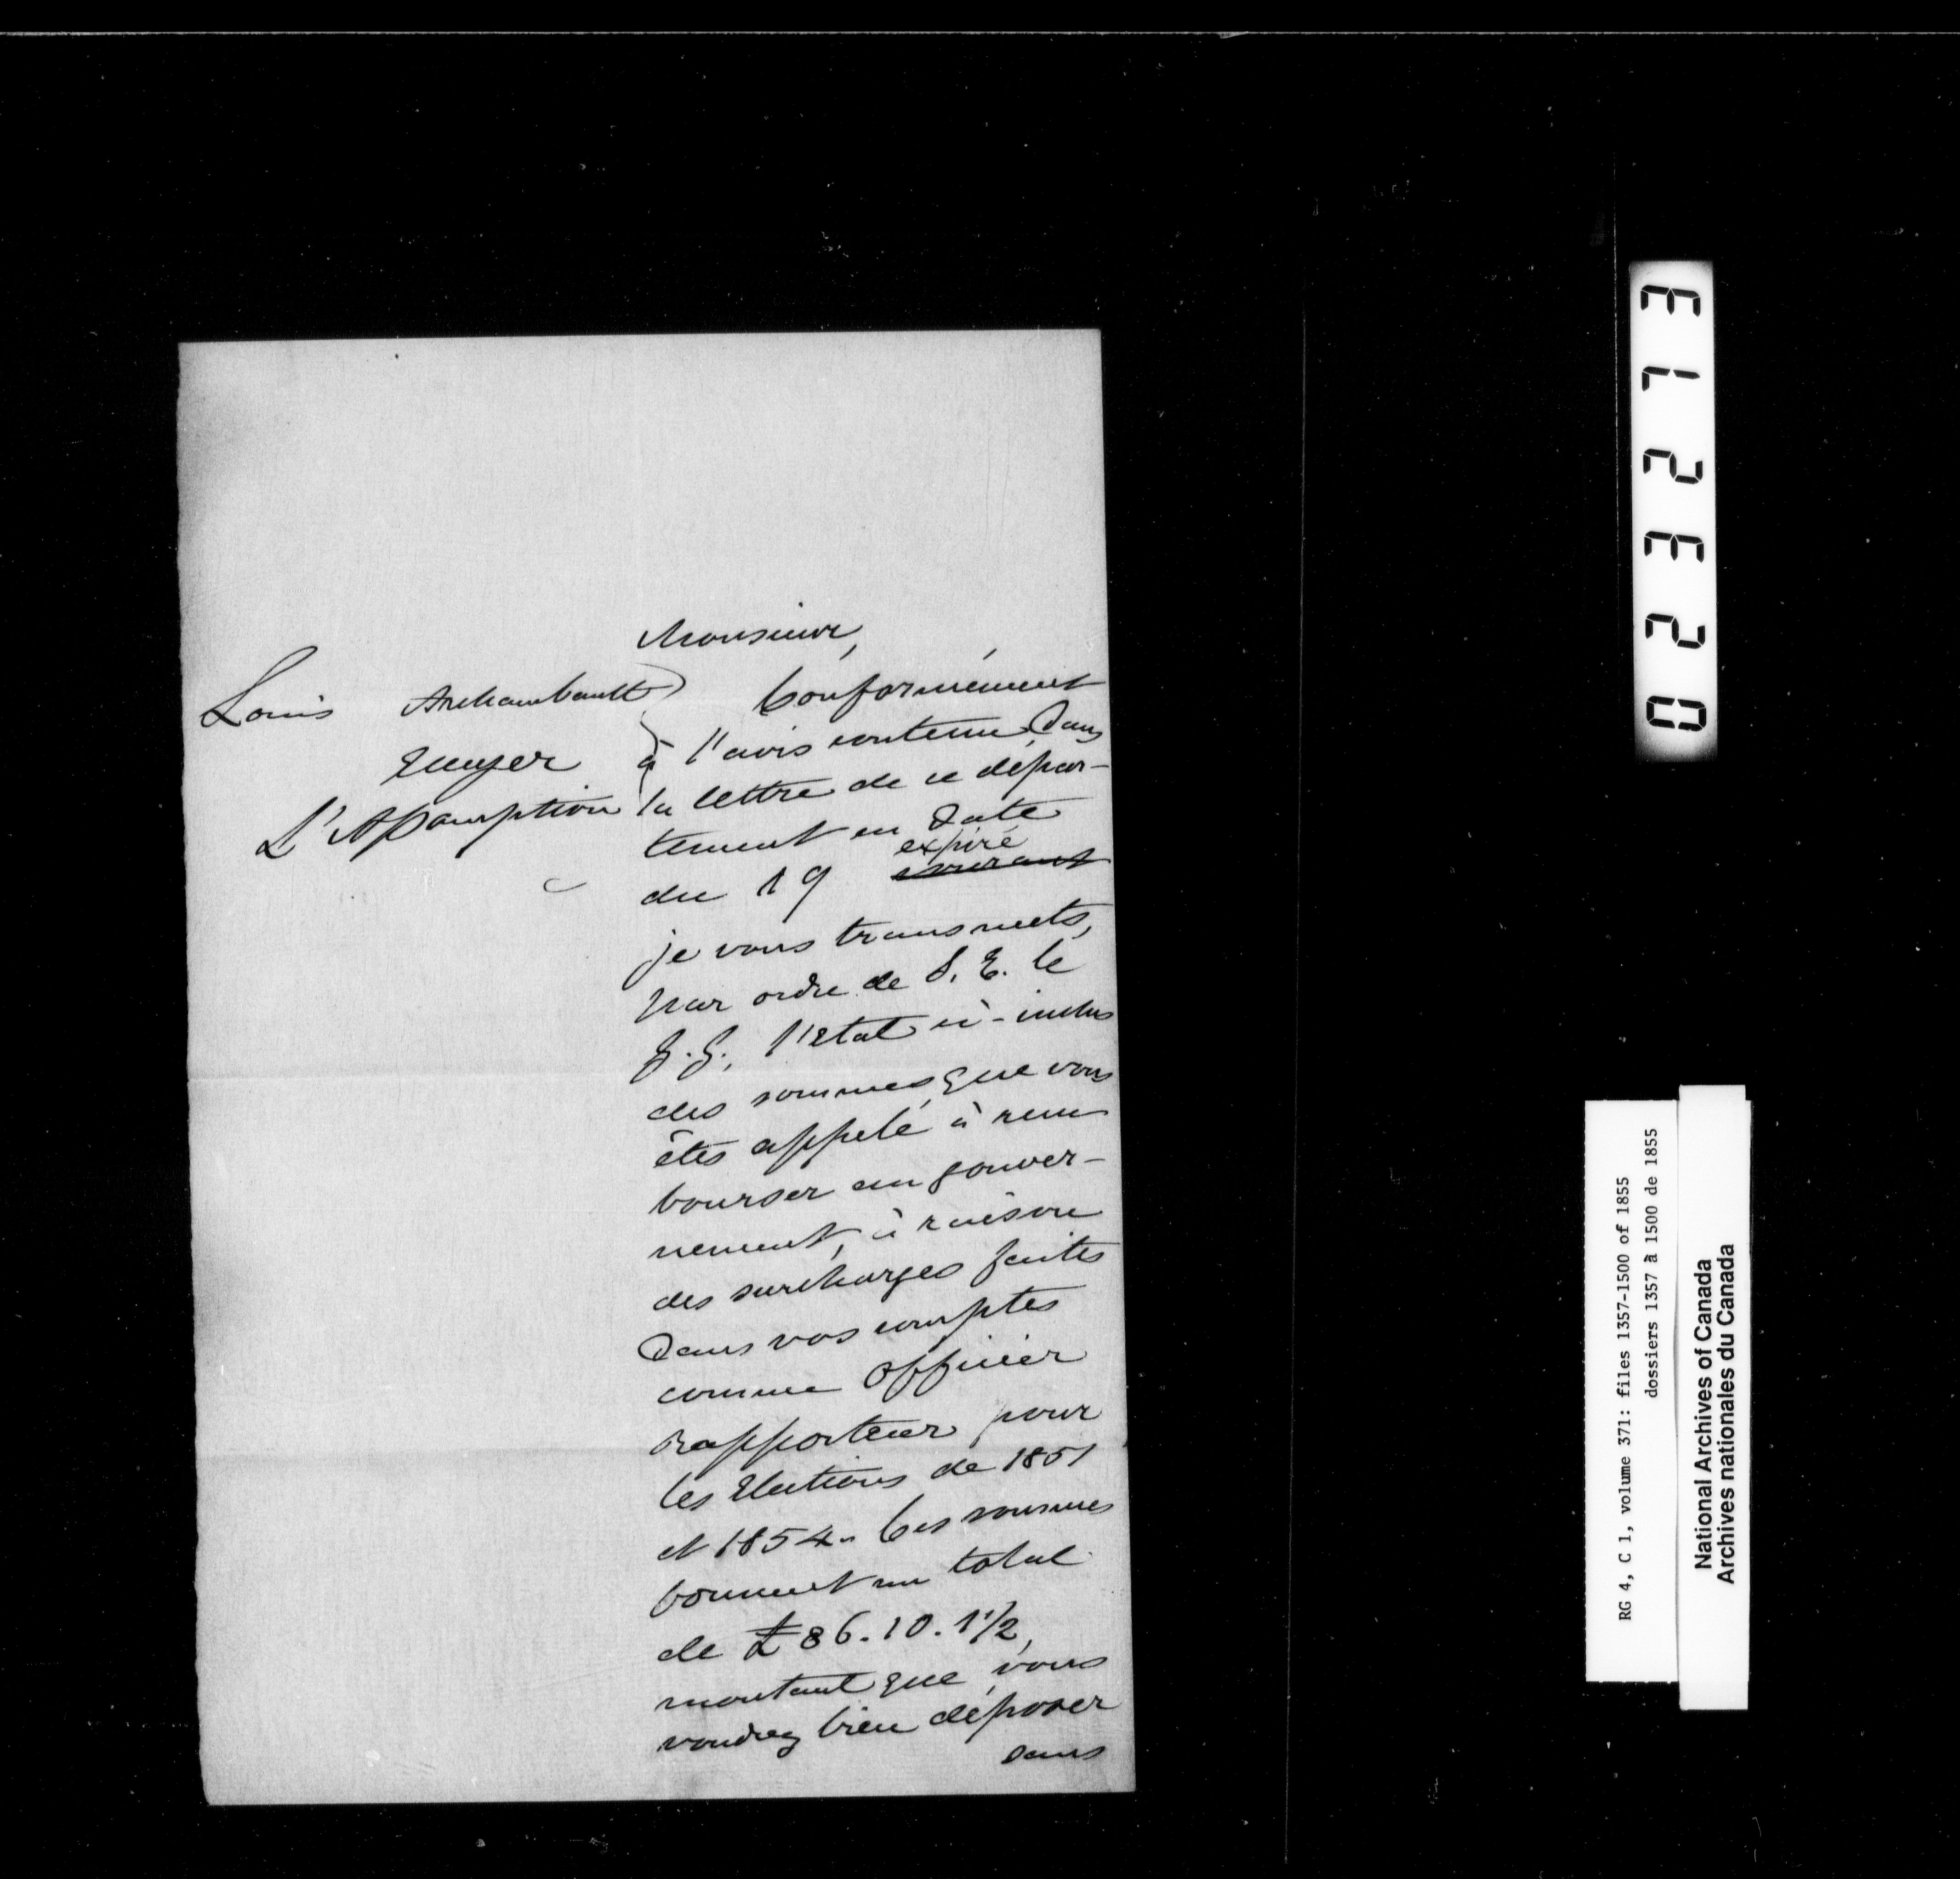 Monsieur,
Louis Archambault
Ecuyer
L'Assomption
Conformément
à l'avis contenu dans
la lettre de ce dépar-
tement en date
expiré
du 19 courant
je vous transmets,
par ordre de S. E. le
G. G., l'Etat ci-inclus
des sommes que vous
êtes appelé à rem
bourser au gouver-
nement, à raison
des surcharges faites
dans vos comptes
comme Officier
rapporteur pour
les Elections de 1851
et 1854. Ces sommes
forment un total
de £86.10.1 1/2,
montant que vous
voudrez bien déposer
dans
023213
RG 4, C 1, volume 371: files 1357-1500 of 1855
dossiers 1357 à 1500 de 1855
National Archives of Canada
Archives nationales du Canada